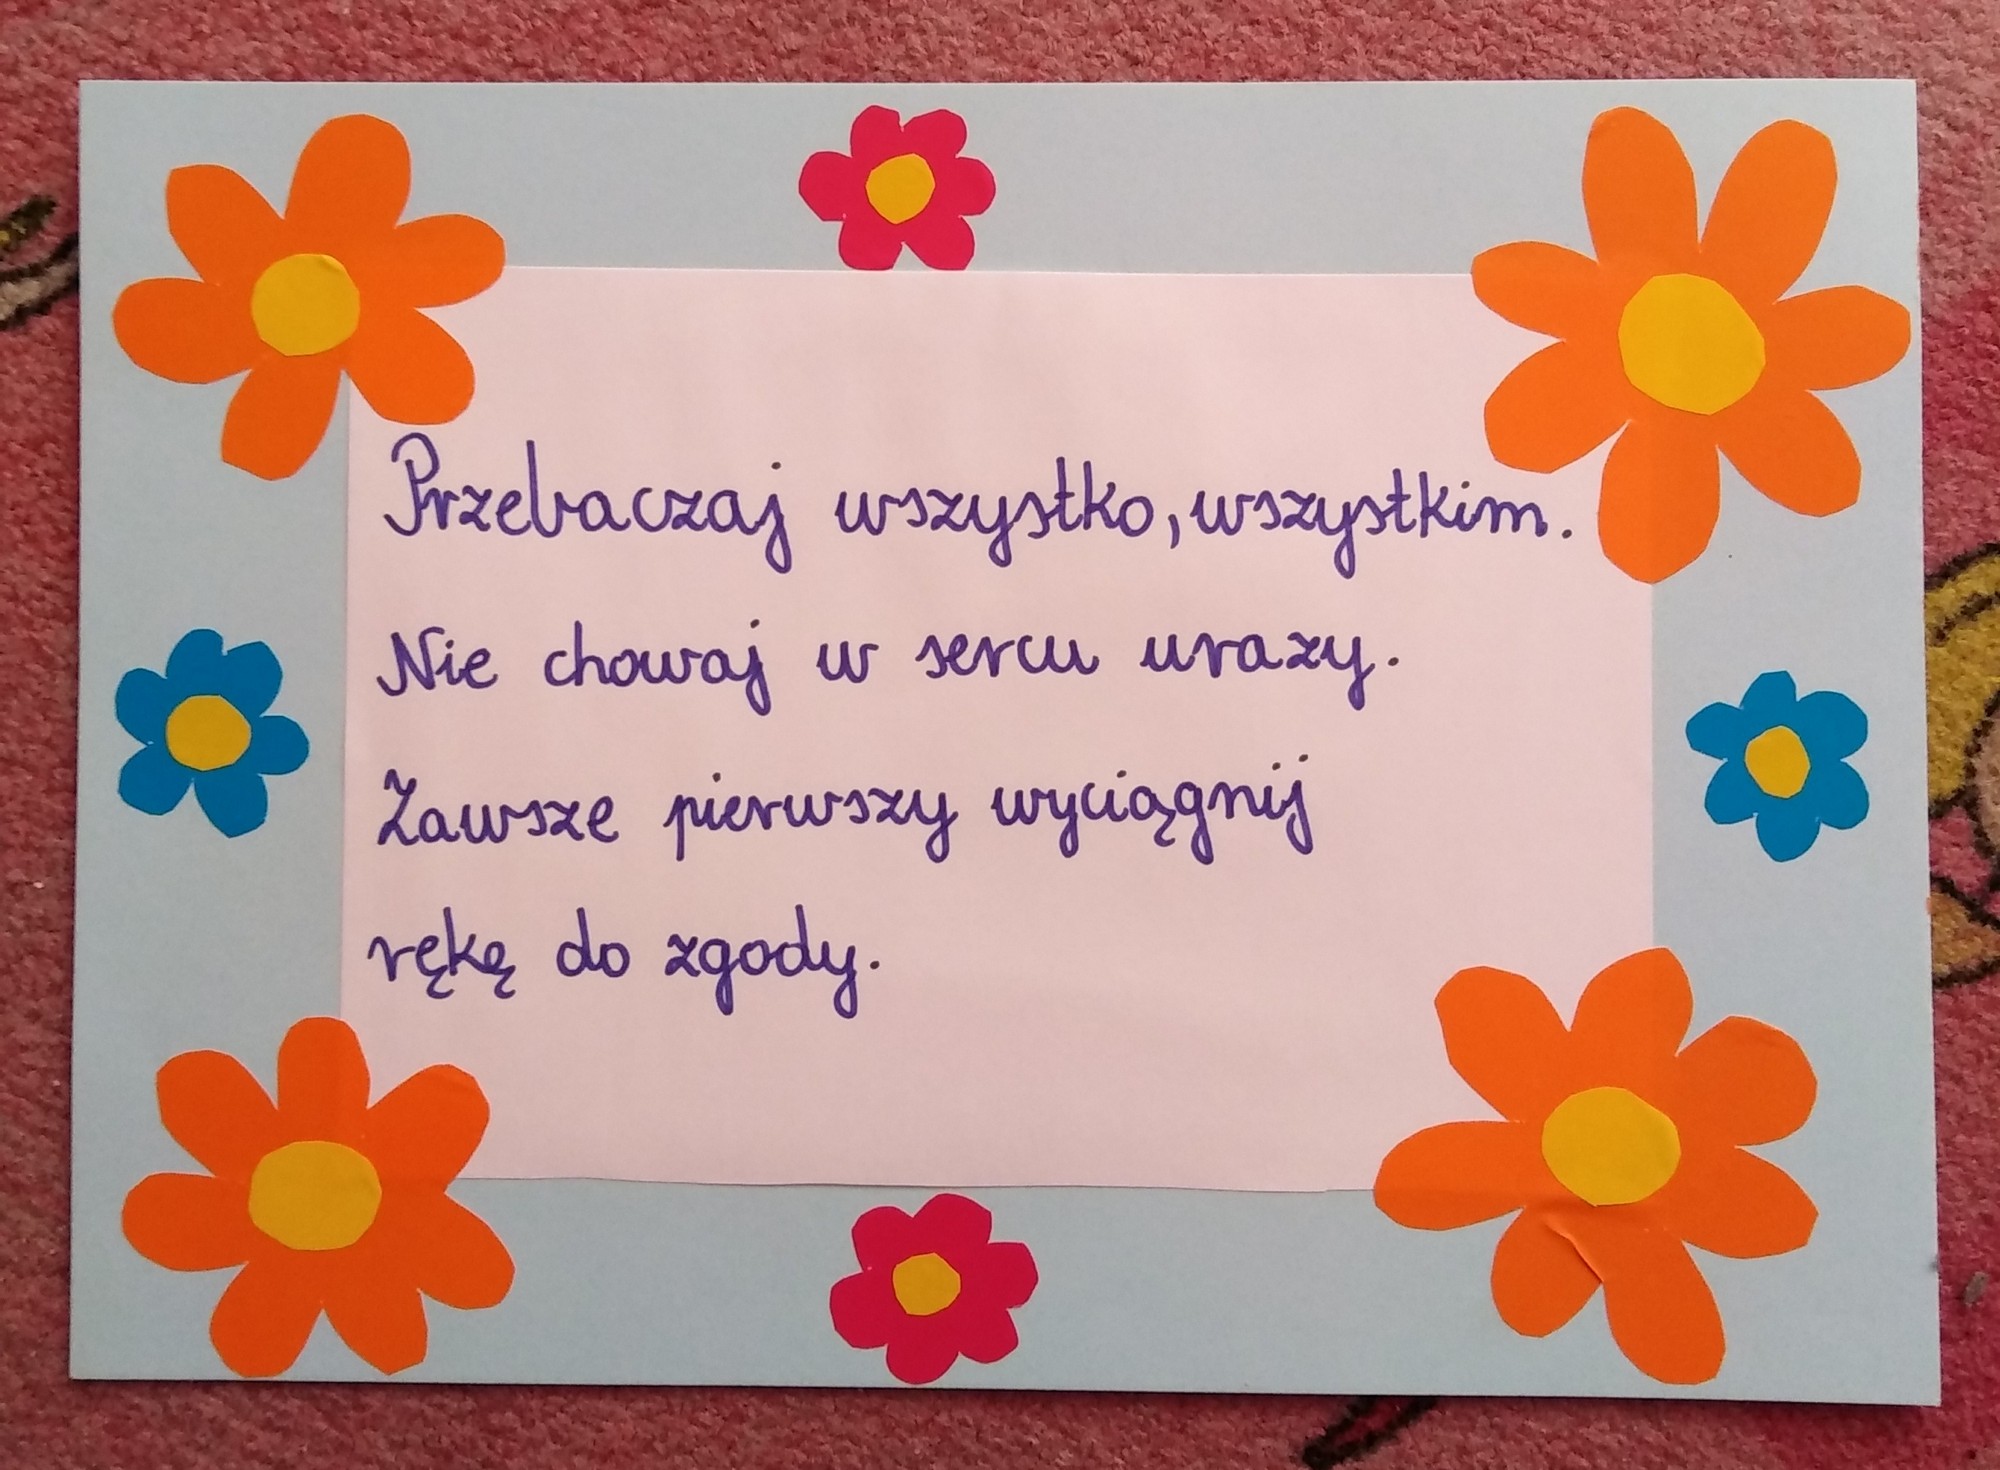 Przebaczaj wszystko, wszystkim.
Nie chowaj w sercu urazy.
Zawsze pierwszy wyciągnij
rękę do zgody.